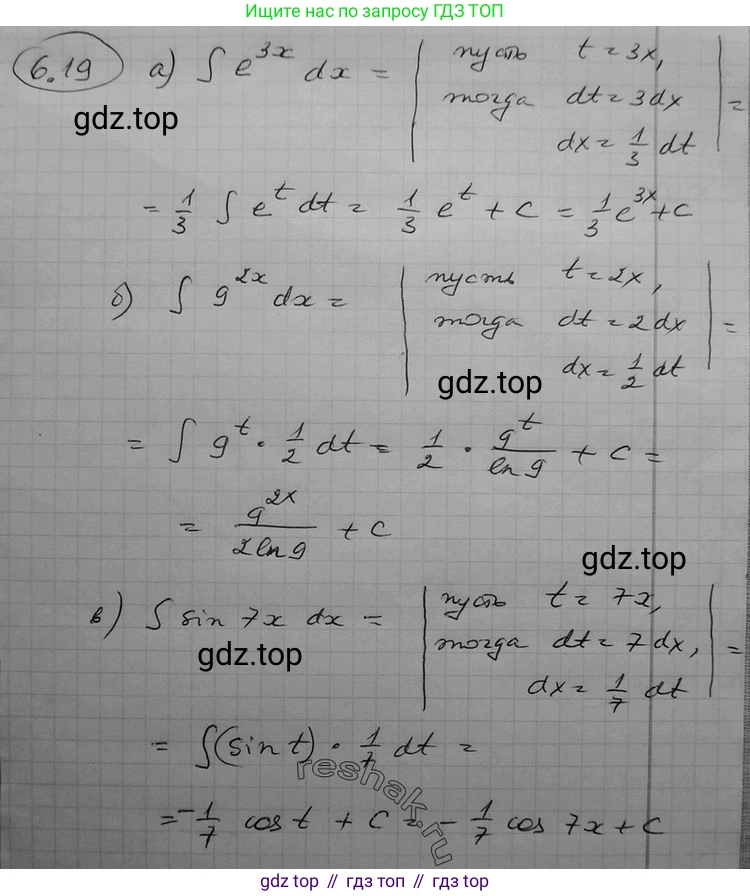 Ищите нас по запросу ГДЗ ТОП
6.19 а) ∫ e^{3x} dx = | пусть t = 3x,
gdz.top тогда dt = 3dx | =
dx = 1/3 dt
= 1/3 ∫ e^t dt = 1/3 e^t + C = 1/3 e^{3x} + C
б) ∫ 9^{2x} dx = | пусть t = 2x,
тогда dt = 2dx | =
gdz.top dx = 1/2 dt
= ∫ 9^t · 1/2 dt = 1/2 · 9^t/ln 9 + C =
= 9^{2x}/2 ln 9 + C
gdz.top
в) ∫ sin 7x dx = | пусть t = 7x,
gdz.top тогда dt = 7dx, | =
dx = 1/7 dt
= ∫(sin t) · 1/7 dt =
reshak.ru
= -1/7 cos t + C = -1/7 cos 7x + C
gdz.top // гдз топ // gdz.top